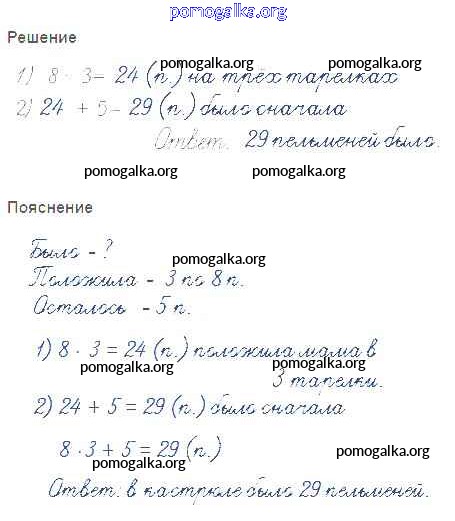 pomogalka.org
Решение
pomogalka.org pomogalka.org
1) 8 · 3 = 24 (п.) на трёх тарелках
2) 24 + 5 = 29 (п.) было сначала
Ответ: 29 пельменей было.
pomogalka.org pomogalka.org
Пояснение
Было - ?
pomogalka.org
Положила - 3 по 8 п.
Осталось - 5 п.
1) 8 · 3 = 24 (п.) положила мама в
pomogalka.org pomogalka.org
3 тарелки.
2) 24 + 5 = 29 (п.) было сначала
8 · 3 + 5 = 29 (п.)
pomogalka.org pomogalka.org
Ответ: в кастрюле было 29 пельменей.